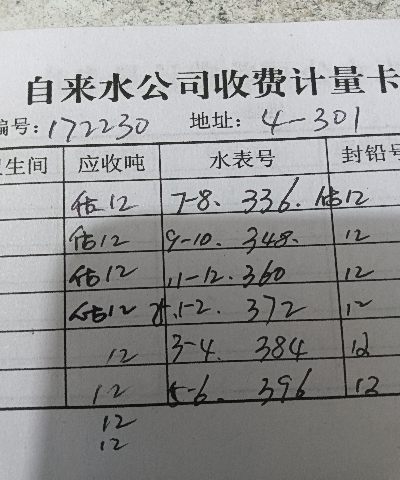 自来水公司收费计量卡
编号: 172230 地址: 4-301
卫生间 应收吨 水表号 封铅号
估12 7-8. 336. 估12
估12 9-10. 348. 12
估12 11-12. 360 12
估12 1-2. 372 12
12 3-4. 384 12
12 5-6. 396 12
12
12